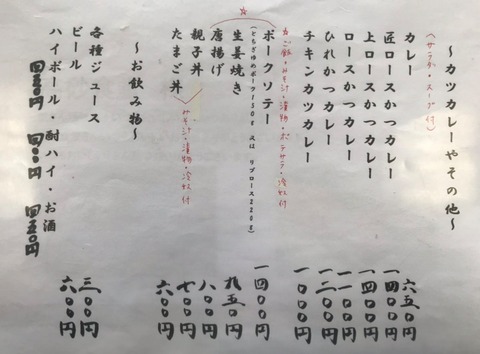 ～カツカレーやその他～
(サラダ・スープ付)
カレー 六五〇円
匠ロースかつカレー 一四〇〇円
上ロースかつカレー 一四〇〇円
ロースかつカレー 一一〇〇円
ひれかつカレー 一二〇〇円
チキンカツカレー 一〇〇〇円
☆ご飯・みそ汁・漬物・ポテサラ・冷奴付
☆
ポークソテー 一四〇〇円
(とちぎゆめポーク150g 又は リブロース220g)
生姜焼き 九五〇円
唐揚げ 八〇〇円
親子丼 七〇〇円
たまご丼 六〇〇円
みそ汁・漬物・冷奴付
～お飲み物～
各種ジュース 三〇〇円
ビール 六〇〇円
ハイボール・酎ハイ・お酒
四五〇円 四〇〇円 四五〇円